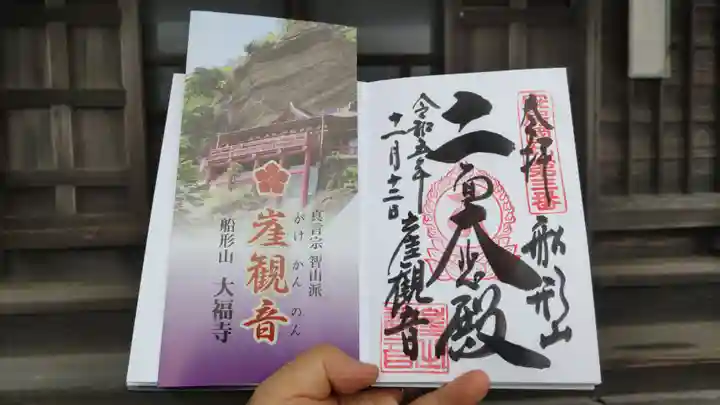 真言宗 智山派
がけ かん のん
崖観音
船形山 大福寺
奉拝
船形山
大悲殿
令和五年
十一月十二日
崖観音